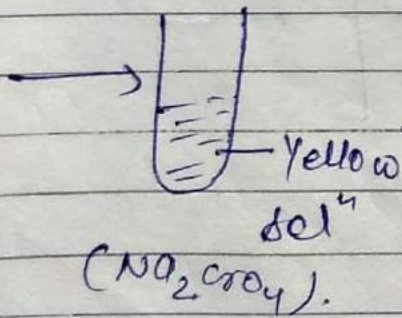 Yellow
solⁿ
(Na₂CrO₄).